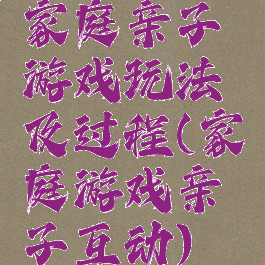 家庭亲子
游戏玩法
及过程(家
庭游戏亲
子互动)